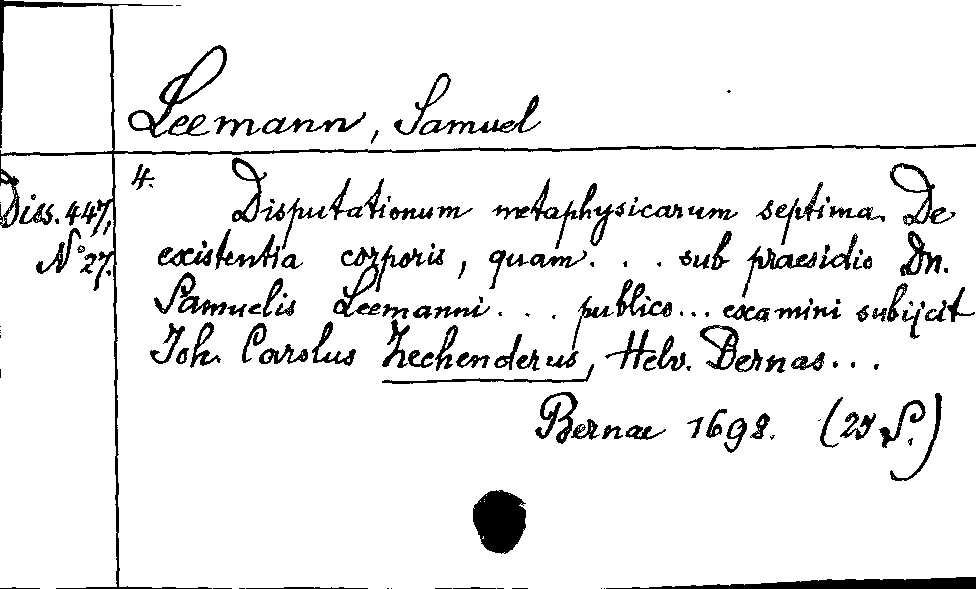 Leemann, Samuel
Diss. 447,
N° 27.
4.
Disputationum metaphysicarum septima. De
existentia corporis, quam . . . sub praesidio Dn.
Samuelis Leemanni . . . publico . . . examini subijcit
Joh. Carolus Zechenderus, Helv. Bernas . . .
Bernae 1698. (25 S.)